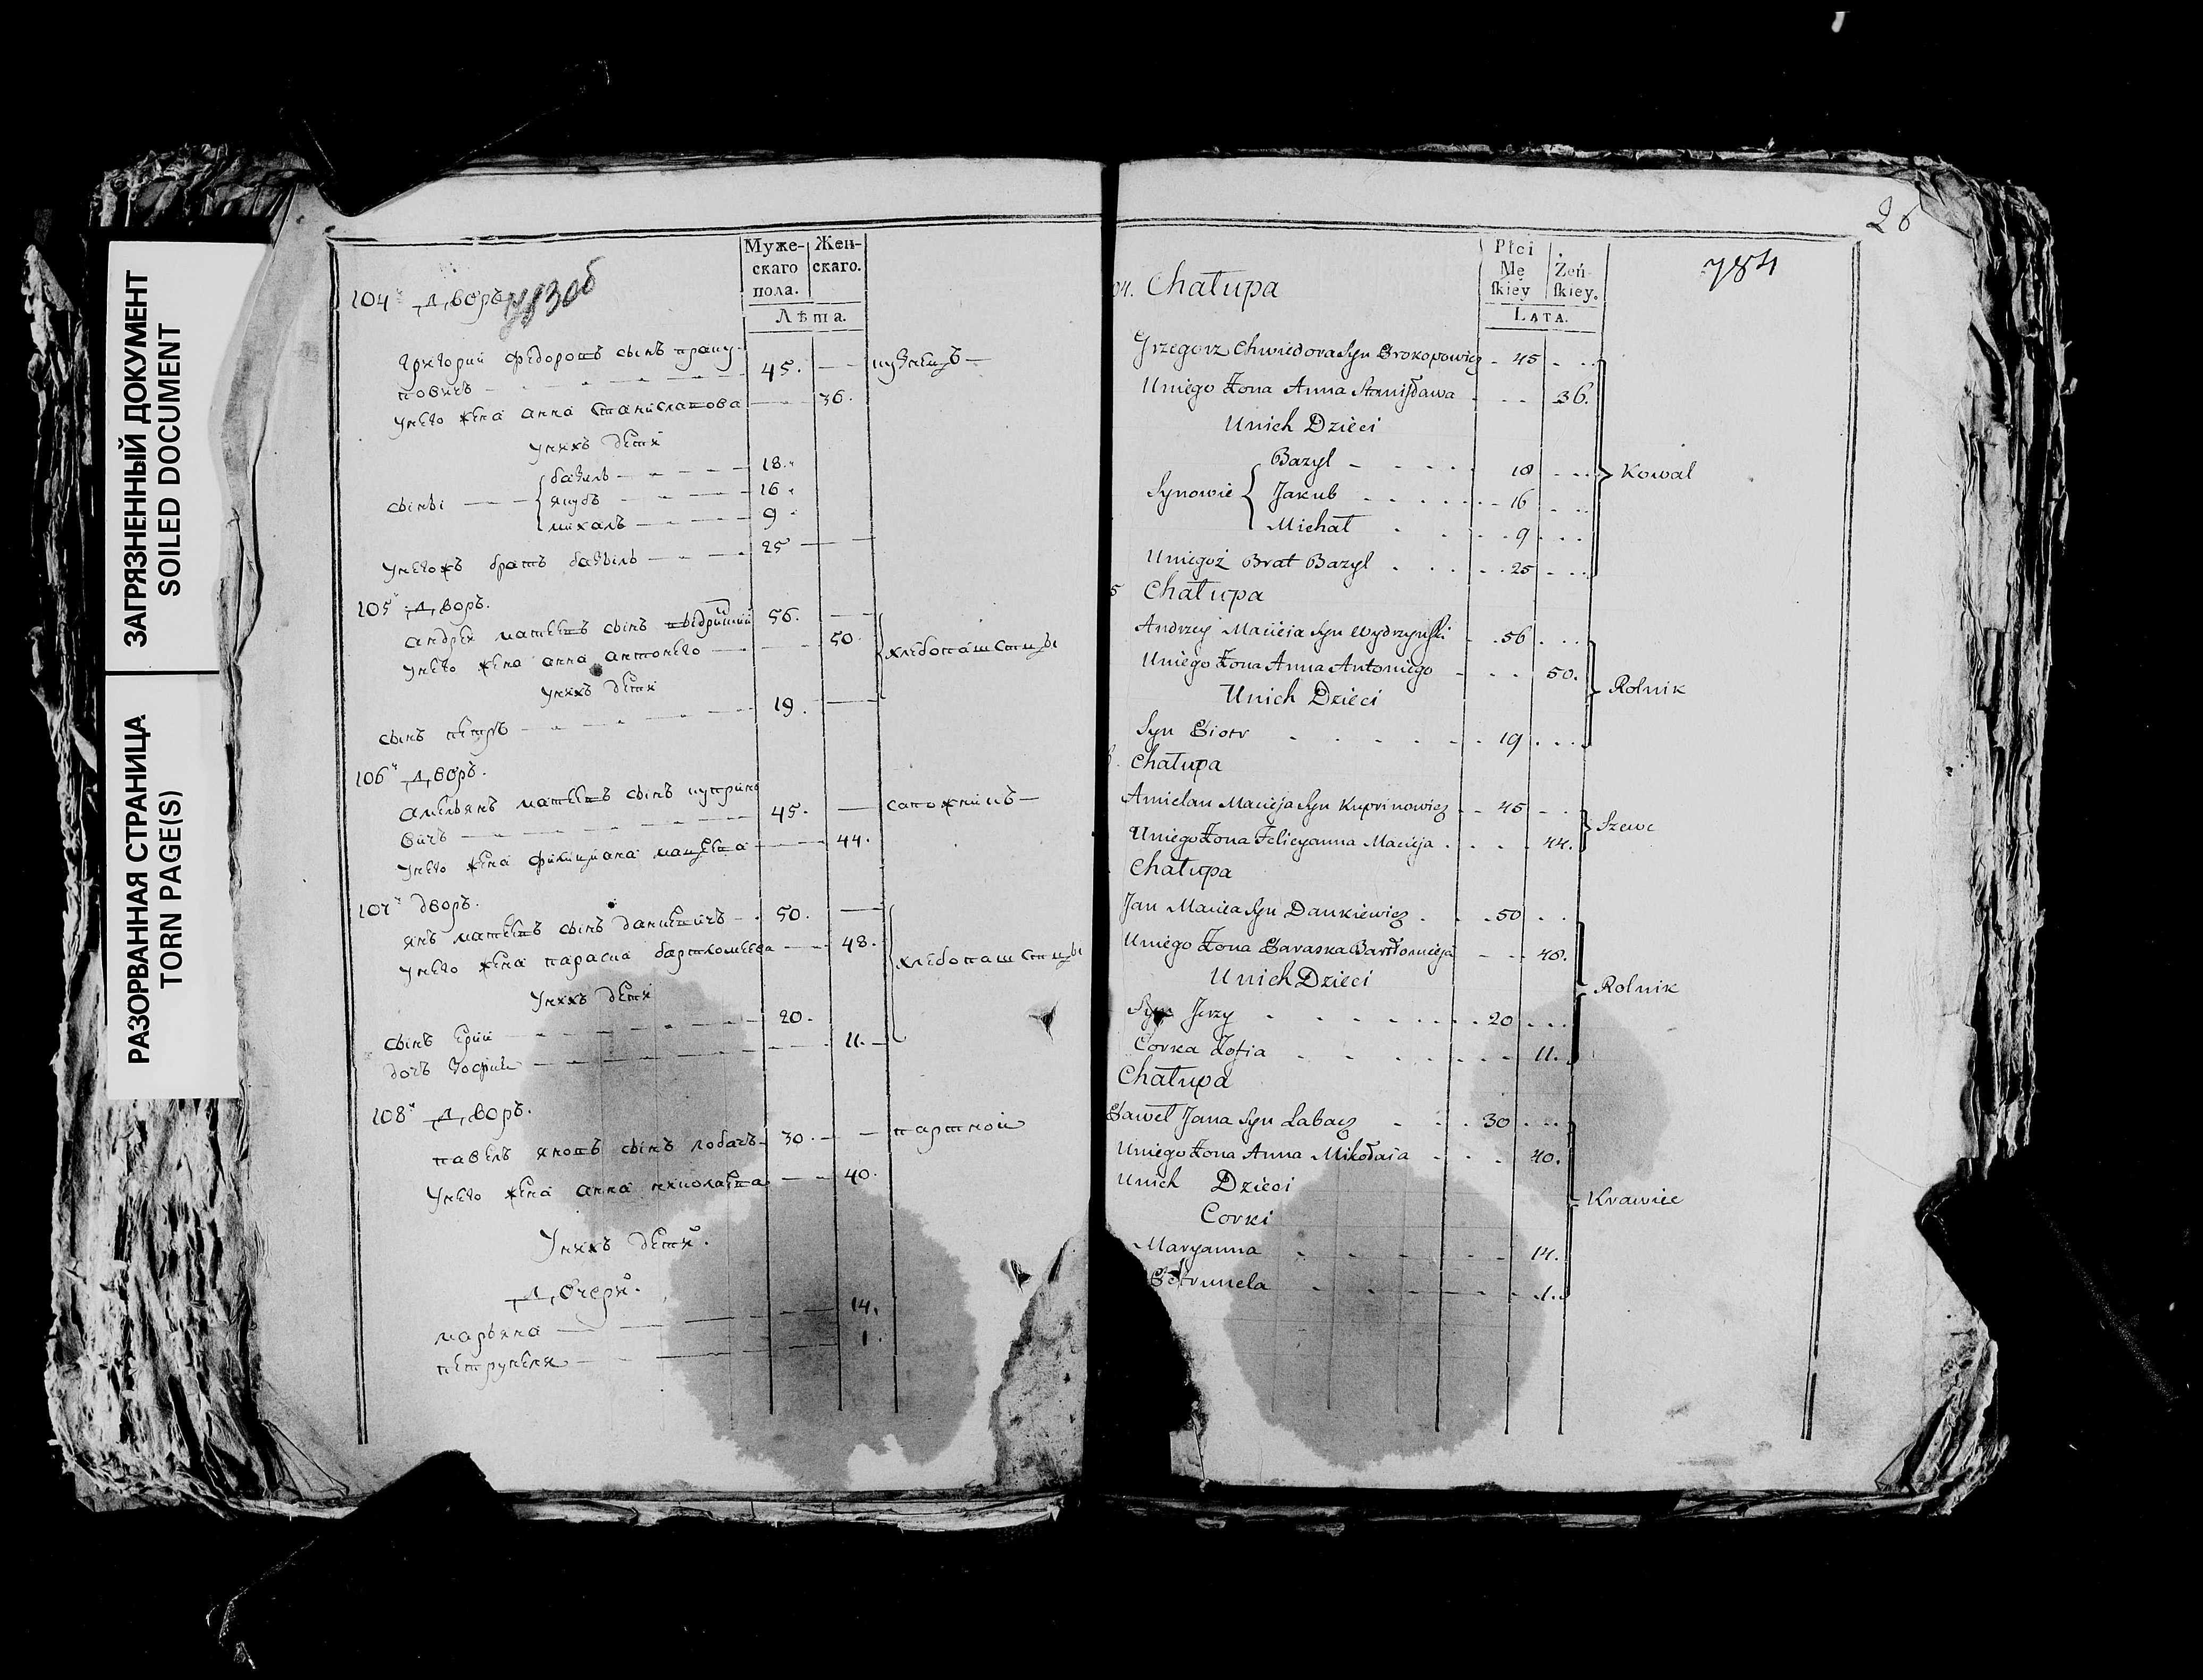 ЗАГРЯЗНЕННЫЙ ДОКУМЕНТ
SOILED DOCUMENT
РАЗОРВАННАЯ СТРАНИЦА
TORN PAGE(S)
Муже- Жен-
скаго скаго.
пола.
Лѣта.
104й дворъ
григорий федоровъ сынъ проку-
повичъ 45. кузнецъ
унего жена анна станиславова 36.
унихъ дети
базыль 18.
сыны якубъ 16
михалъ 9
унегожъ братъ базыль 25
105й дворъ.
андрей матеевъ сынъ 56.
унего жена анна антонего 50. хлебопашетцы
унихъ дети
сынъ петръ 19.
106й дворъ.
амельянъ матеевъ сынъ куприно
вичъ 45. сапожникъ
унего жена фелицияна мацеева 44.
107й дворъ.
янъ матеевъ сынъ данкевичъ 50.
унего жена параска бартломеева 48. хлебопашетцы
унихъ дети
сынъ ерий 20.
дочъ зофия 11.
108й дворъ.
павелъ яновъ сынъ лобачъ 30. партной
унего жена анна николаева 40.
унихъ дети.
дочери.
марьяна 14.
петрунеля 1.
26
784
Płci
Mę Żeń-
skiey skiey.
LATA.
04. Chałupa
Grzegorz Chwiedora Syn Prokopowicz 45
Uniego Żona Anna Stanisława 36.
Unich Dzieci
Bazyl 18 Kowal
Synowie Jakub 16
Michał 9
Uniegoż Brat Bazyl 25
5 Chałupa
Andrzey Macieia Syn Wydrzyński 56
Uniego Żona Anna Antoniego 50.
Unich Dzieci Rolnik
Syn Piotr 19
Chałupa
Amielan Macieja Syn Kuprinowicz 45
Uniego Żona Felicyanna Macieja 44. Szewc
Chałupa
Jan Macieia Syn Dankiewicz 50
Uniego Żona Paraska Bartłomieja 48.
Unich Dzieci Rolnik
Syn Jerzy 20
Corka Zofia 11.
Chałupa
Paweł Jana Syn Łabacz 30
Uniego Żona Anna Mikołaia 40.
Unich Dzieci Krawiec
Corki
Maryanna 14.
Petrunela 1.